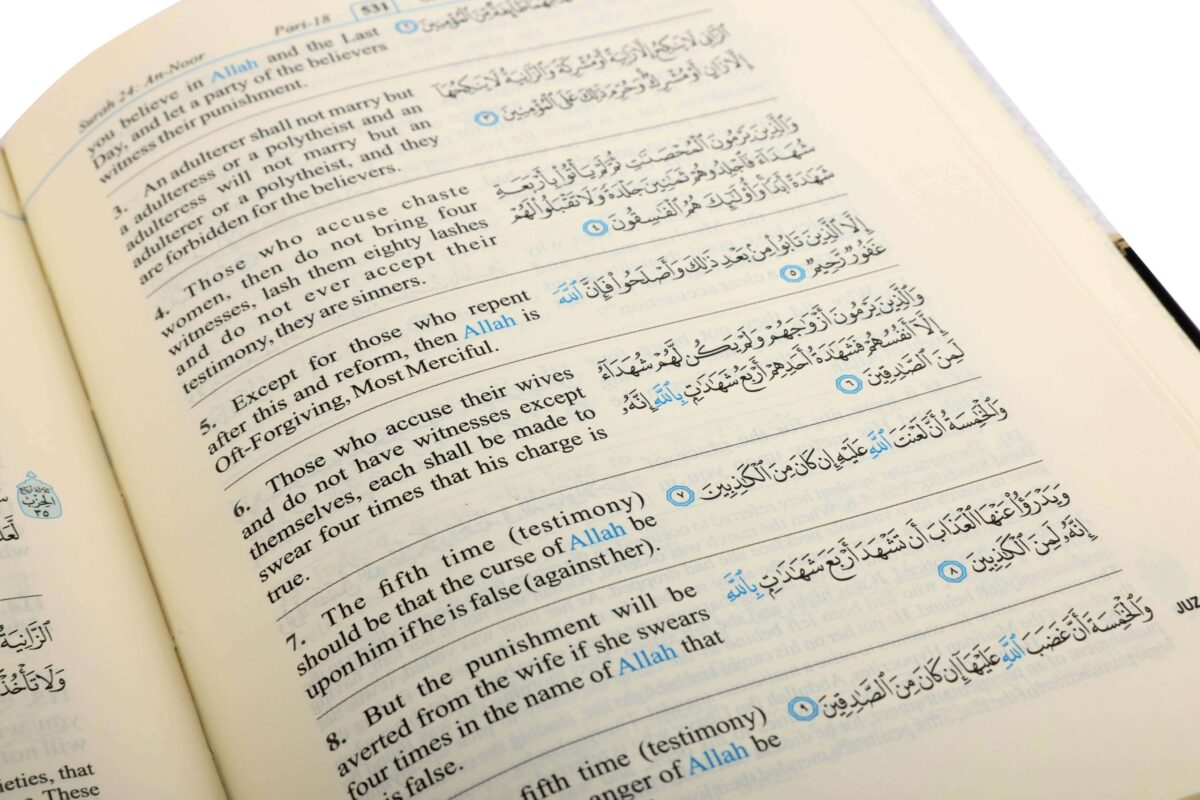 Surah 24: An-Noor
Part-18
531
you believe in Allah and the Last
Day, and let a party of the believers
witness their punishment.
3. An adulterer shall not marry but
a adulteress or a polytheist and an
adulteress will not marry but an
adulterer or a polytheist, and they
are forbidden for the believers.
ٱلزَّانِى لَا يَنكِحُ إِلَّا زَانِيَةً أَوْ مُشْرِكَةً وَٱلزَّانِيَةُ لَا يَنكِحُهَآ
إِلَّا زَانٍ أَوْ مُشْرِكٌ وَحُرِّمَ ذَٰلِكَ عَلَى ٱلْمُؤْمِنِينَ ٣
4. Those who accuse chaste
women, then do not bring four
witnesses, lash them eighty lashes
and do not ever accept their
testimony, they are sinners.
وَٱلَّذِينَ يَرْمُونَ ٱلْمُحْصَنَٰتِ ثُمَّ لَمْ يَأْتُوا۟ بِأَرْبَعَةِ
شُهَدَآءَ فَٱجْلِدُوهُمْ ثَمَٰنِينَ جَلْدَةً وَلَا تَقْبَلُوا۟ لَهُمْ
شَهَٰدَةً أَبَدًا وَأُو۟لَٰٓئِكَ هُمُ ٱلْفَٰسِقُونَ ٤
5. Except for those who repent
after this and reform, then Allah is
Oft-Forgiving, Most Merciful.
إِلَّا ٱلَّذِينَ تَابُوا۟ مِنۢ بَعْدِ ذَٰلِكَ وَأَصْلَحُوا۟ فَإِنَّ ٱللَّهَ
غَفُورٌ رَّحِيمٌ ٥
6. Those who accuse their wives
and do not have witnesses except
themselves, each shall be made to
swear four times that his charge is
true.
وَٱلَّذِينَ يَرْمُونَ أَزْوَٰجَهُمْ وَلَمْ يَكُن لَّهُمْ شُهَدَآءُ
إِلَّآ أَنفُسُهُمْ فَشَهَٰدَةُ أَحَدِهِمْ أَرْبَعُ شَهَٰدَٰتٍۭ بِٱللَّهِ إِنَّهُۥ
لَمِنَ ٱلصَّٰدِقِينَ ٦
7. The fifth time (testimony)
should be that the curse of Allah be
upon him if he is false (against her).
وَٱلْخَٰمِسَةُ أَنَّ لَعْنَتَ ٱللَّهِ عَلَيْهِ إِن كَانَ مِنَ ٱلْكَٰذِبِينَ ٧
8. But the punishment will be
averted from the wife if she swears
four times in the name of Allah that
is false.
وَيَدْرَؤُا۟ عَنْهَا ٱلْعَذَابَ أَن تَشْهَدَ أَرْبَعَ شَهَٰدَٰتٍۭ بِٱللَّهِ
إِنَّهُۥ لَمِنَ ٱلْكَٰذِبِينَ ٨
fifth time (testimony)
anger of Allah be
وَٱلْخَٰمِسَةَ أَنَّ غَضَبَ ٱللَّهِ عَلَيْهَآ إِن كَانَ مِنَ ٱلصَّٰدِقِينَ ٩
JUZ
ٱلزَّانِيَةُ
وَلَا تَأْخُذْ
ieties, that
These